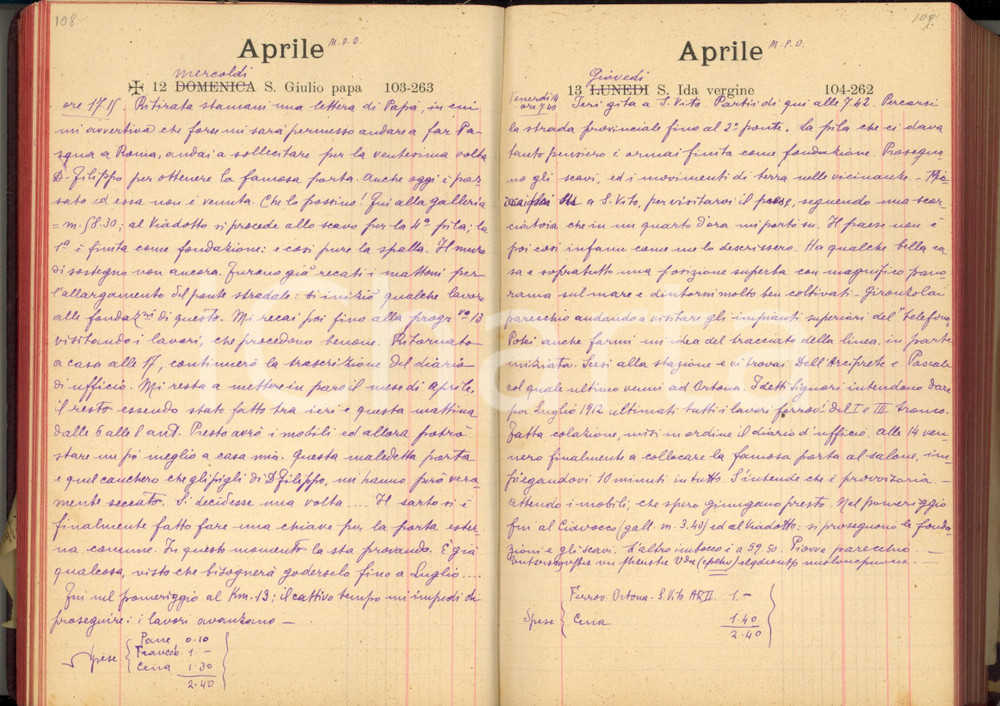 108
Aprile M.P.D.
mercoldì
✠ 12 DOMENICA S. Giulio papa 103-263
ore 17.15. Ritirata stamani una lettera di Papà, in cui
mi avvertiva che forse mi sarà permesso andare a far Pa-
squa a Roma, andai a sollecitare per la ventesima volta
D. Filippo per ottenere la famosa porta. Anche oggi è pas-
sato ed essa non è venuta. Che lo possino! Fui alla galleria
= m. 58.30; al Viadotto si procede allo scavo per la 4ª pila; la
1ª è finita come fondazione: e così pure la spalla. Il muro
di sostegno non ancora. Furono già recati i mattoni per
l'allargamento del ponte stradale: si iniziò qualche lavoro
alle fondazni di questo. Mi recai poi fino alla progr. 13
visitando i lavori, che procedono benone. Ritornato
a casa alle 17, continuerò la trascrizione del diario
di ufficio. Mi resta a mettere in pari il mese di Aprile,
il resto essendo stato fatto tra ieri e questa mattina
dalle 6 alle 8 ant. Presto avrò i mobili ed allora potrò
stare un pò meglio a casa mia. Questa maledetta porta
e quel canchero che gli pigli di D. Filippo, mi hanno però vera-
mente seccato. Si decidesse una volta .... Il sarto si è
finalmente fatto fare una chiave per la porta ester-
na comune. In questo momento la sta provando. È già
qualcosa, visto che bisognerà goderselo fino a Luglio ....
Fui nel pomeriggio al Km. 13; il cattivo tempo mi impedì di
proseguire: i lavori avanzano —
Spese
Pane 0.10
Francob. 1.—
Cena 1.30
2.40
109
Aprile M.P.D.
Giovedì
13 LUNEDI S. Ida vergine 104-262
Venerdì 14
ore 7.40
Ieri gita a S. Vito. Partii di qui alle 7.42. Percorsi
la strada provinciale fino al 2º ponte. La pila che ci dava
tanto pensiero è ormai finita come fondazione. Prosegno-
no gli scavi, ed i movimenti di terra nelle vicinanze. —
a S. Vito, per visitarvi il paese, seguendo una scor-
ciatoia che in un quarto d'ora mi portò su. Il paese non è
poi così infame come me lo descrissero. Ha qualche bella ca
sa e sopratutto una posizione superba con magnifico pano
rama sul mare e dintorni molto ben coltivati. Gironzolai
parecchio andando a visitare gli impianti superiori del "telefono
Potei anche farmi un'idea del tracciato della linea, in parte
iniziata. Scesi alla stazione e vi trovai Dell'Arciprete e Pascale
col quale ultimo venni ad Ortona. I detti Signori intendono dare
per Luglio 1912 ultimati tutti i lavori ferrov. del I e III tronco.
Fatta colazione, misi in ordine il diario d'ufficio. Alle 14 ven-
nero finalmente a collocare la famosa porta al salone, im-
piegandovi 10 minuti in tutto. S'intende che è provvisoria —
attendo i mobili, che spero giungano presto. Nel pomeriggio
fui al Cidrocco (gall. m. 3.40) ed al Viadotto: si proseguono le fonda-
zioni e gli scavi. L'altro imbocco è a 59.50. Piovve parecchio. —
Spese
Ferrov. Ortona - S. Vito A.R. II. 1.—
Cena 1.40
2.40